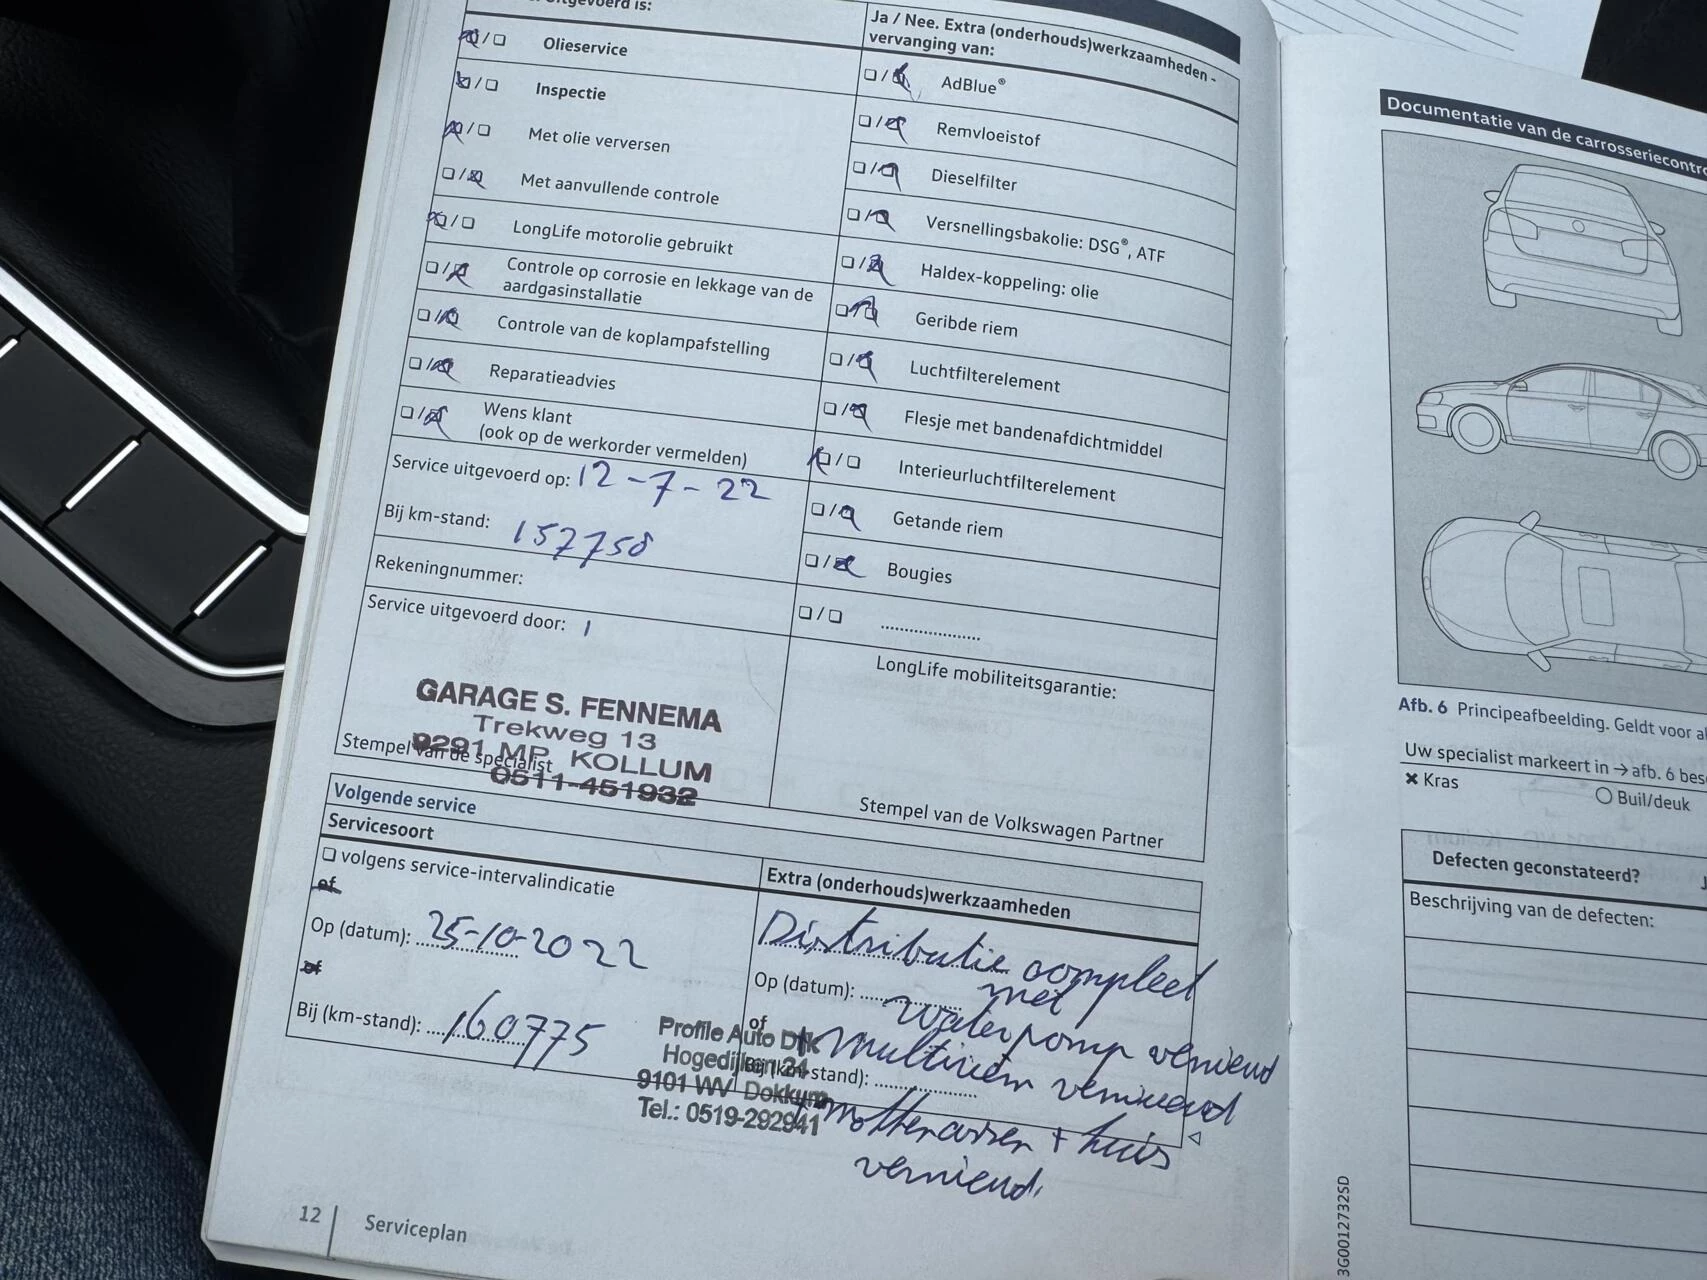 Uitgevoerd is:
Ja / Nee. Extra (onderhouds)werkzaamheden -
vervanging van:
❏/❏ Olieservice
❏/❏ Inspectie
❏/❏ Met olie verversen
❏/❏ Met aanvullende controle
❏/❏ LongLife motorolie gebruikt
❏/❏ Controle op corrosie en lekkage van de
aardgasinstallatie
❏/❏ Controle van de koplampafstelling
❏/❏ Reparatieadvies
❏/❏ Wens klant
(ook op de werkorder vermelden)
Service uitgevoerd op: 12-7-22
Bij km-stand: 157758
Rekeningnummer:
Service uitgevoerd door:
GARAGE S. FENNEMA
Trekweg 13
9291 MP KOLLUM
0511-451932
Stempel van de specialist
❏/❏ AdBlue®
❏/❏ Remvloeistof
❏/❏ Dieselfilter
❏/❏ Versnellingsbakolie: DSG®, ATF
❏/❏ Haldex-koppeling: olie
❏/❏ Geribde riem
❏/❏ Luchtfilterelement
❏/❏ Flesje met bandenafdichtmiddel
❏/❏ Interieurluchtfilterelement
❏/❏ Getande riem
❏/❏ Bougies
❏/❏ ....................
LongLife mobiliteitsgarantie:
Stempel van de Volkswagen Partner
Volgende service
Servicesoort
❏ volgens service-intervalindicatie
of
Op (datum): 25-10-2022
of
Bij (km-stand): 160775
Extra (onderhouds)werkzaamheden
Distributie compleet
met
Op (datum):
waterpomp vernieuwd
of
+ Multiriem vernieuwd
Bij (km-stand):
huis
vernieuwd.
Profile Auto Dijk
Hogedijken 24
9101 WV Dokkum
Tel.: 0519-292941
12 Serviceplan
Documentatie van de carrosseriecontro
Afb. 6 Principeafbeelding. Geldt voor al
Uw specialist markeert in → afb. 6 bes
✖ Kras
○ Buil/deuk
Defecten geconstateerd?
Beschrijving van de defecten:
3G0012732SD